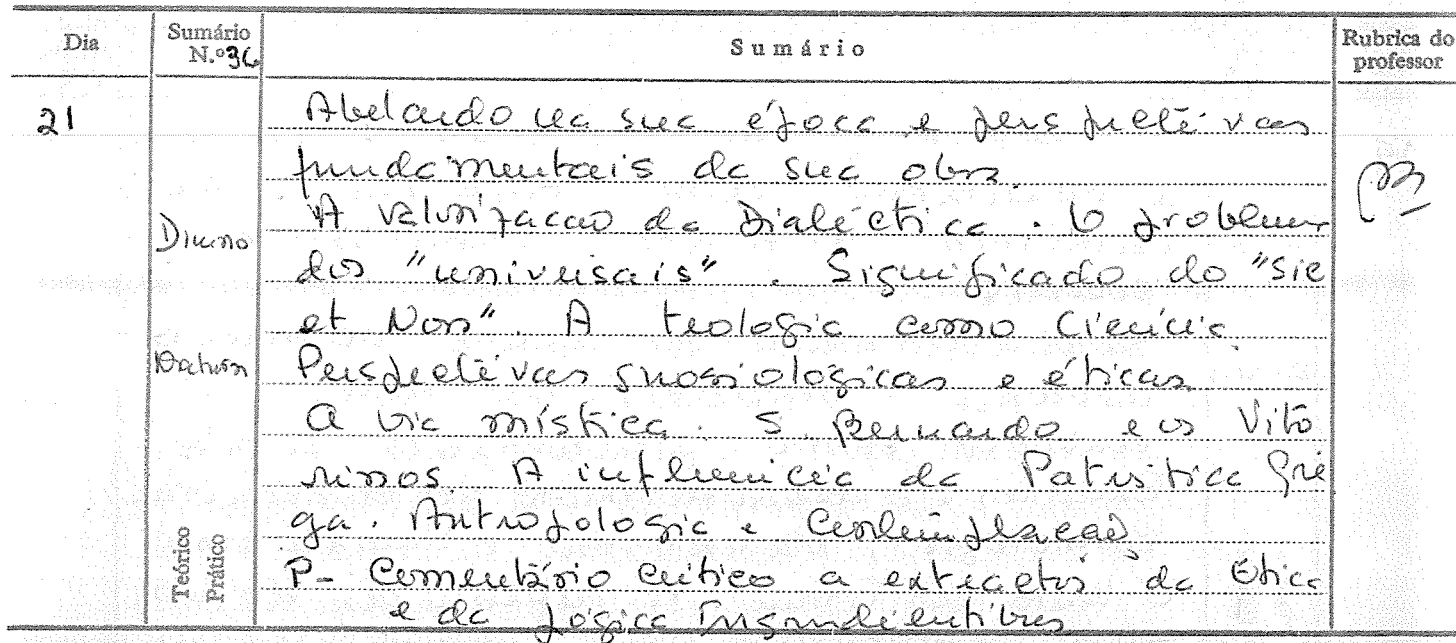 Dia
Sumário N.º 36
Sumário
Rubrica do professor
21
Abelardo na sua época e perspectivas
fundamentais da sua obra.
A valorização da Dialéctica. O problema
dos "universais". Significado do "Sic
et Non". A teologia como Ciência.
Perspectivas gnosiológicas e éticas
A via mística. S. Bernardo e os Vito
rinos. A influência da Patrística Gre
ga. Antropologia e Contemplação
P- Comentário crítico a extractos da Ética
e da Lógica Ingredientibus
Diurno
Teórico
Prático